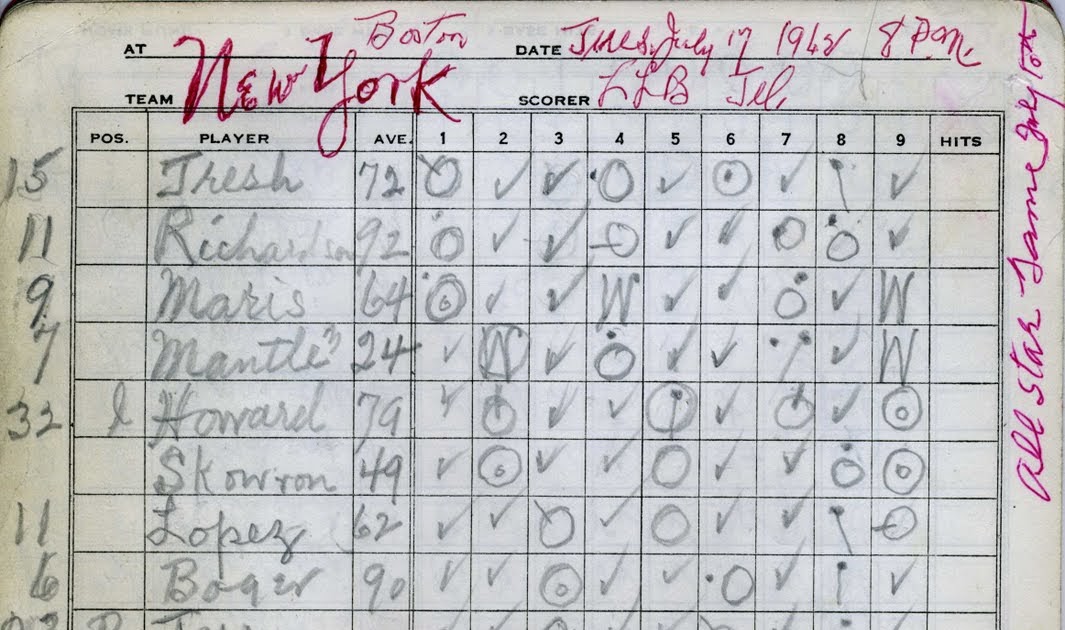 AT Boston DATE Tues. July 17 1962 8 P.M.
TEAM New York SCORER LLB Tel.
POS. PLAYER AVE. 1 2 3 4 5 6 7 8 9 HITS
15 Tresh 72
11 Richardson 92
9 Maris 64 W W
7 Mantle 24 W W
32 Howard 79
Skowron 49
11 Lopez 62
6 Boyer 90
All Star Game July